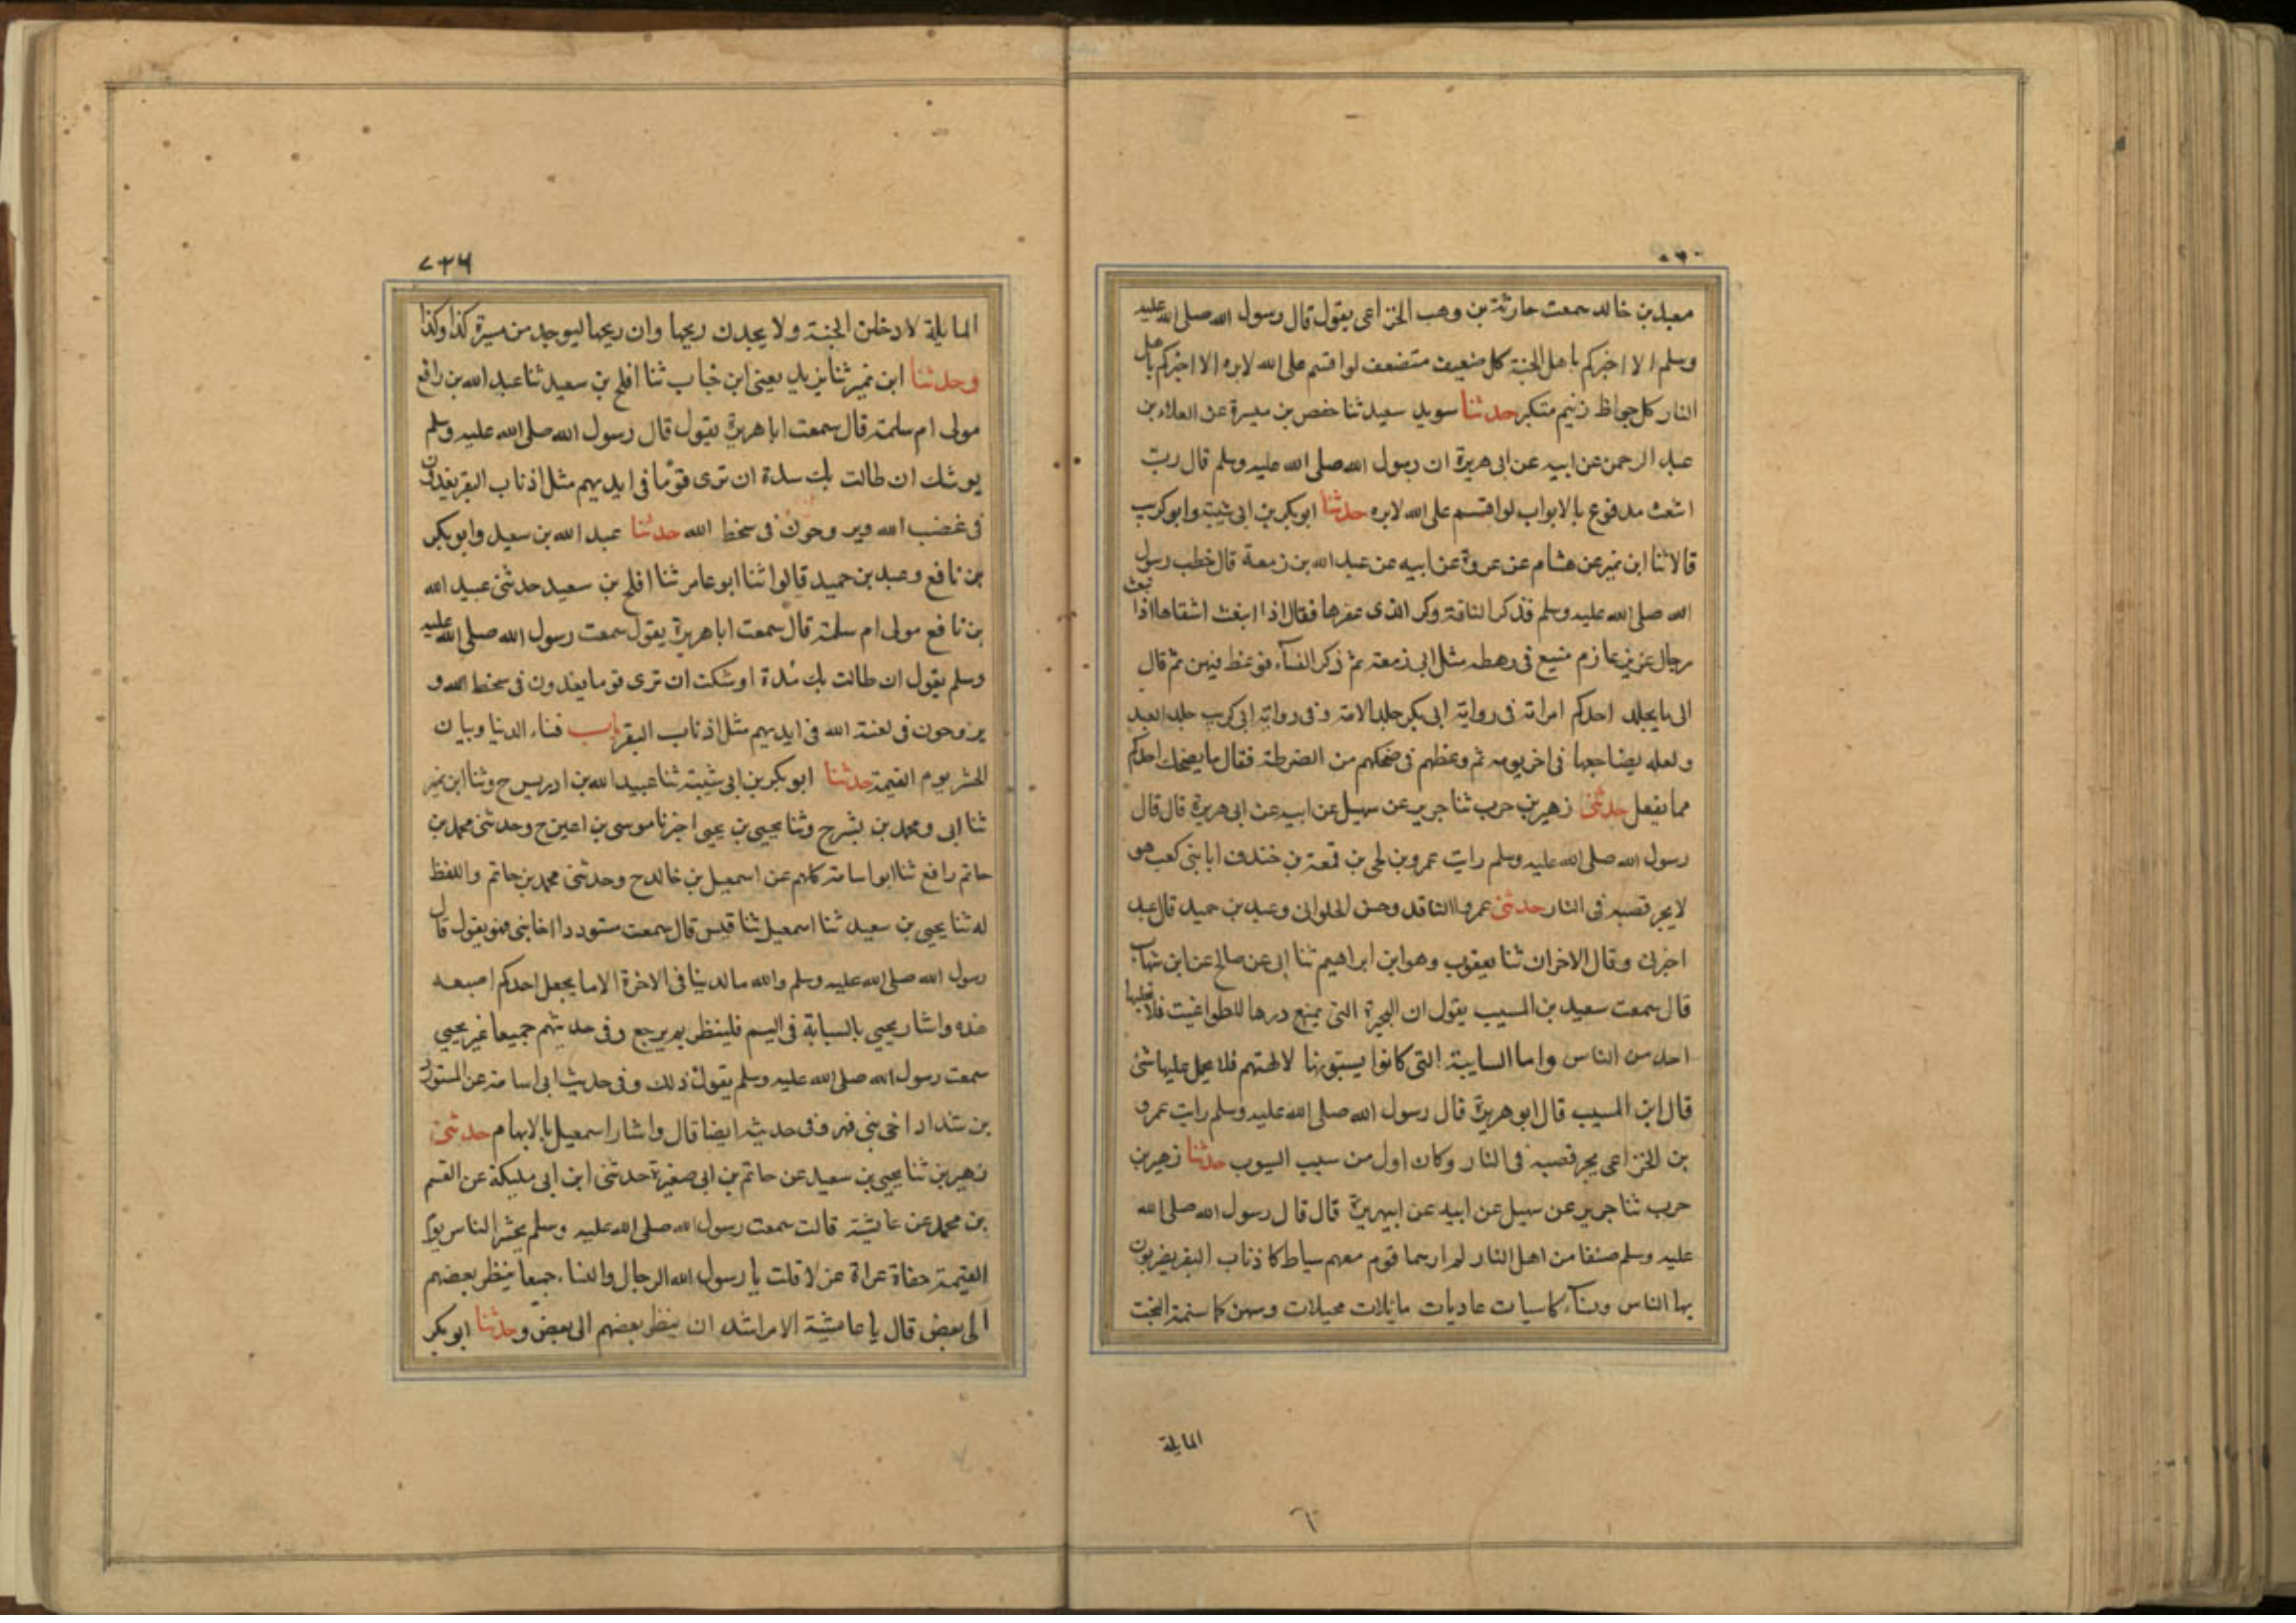 معبد بن خالد سمعت حارثة بن وهب الخزاعى يقول قال رسول الله صلى الله عليه
وسلم الا اخبركم باهل الجنة كل ضعيف متضعف لو اقسم على الله لابره الا اخبركم باهل
النار كل جواظ زنيم متكبر حدثنا سويد سعيد ثنا حفص بن ميسرة عن العلاء بن
عبد الرحمن عن ابيه عن ابى هريرة ان رسول الله صلى الله عليه وسلم قال رب
اشعث مدفوع بالابواب لو اقسم على الله لابره حدثنا ابو بكر بن ابى شيبة وابو كريب
قالا ثنا ابن نمير عن هشام عن عروة عن ابيه عن عبد الله بن زمعة قال خطب رسول
الله صلى الله عليه وسلم فذكر الناقة وكر الذى عقرها فقال اذا ابنعث اشقاها اذا
رجال عزيز عازم منيع فى رهطه مثل ابى زمعة ثم ذكر النسآء فوعظ فيهن ثم قال
الى ما يجلد احدكم امراته فى رواية ابى بكر جلد الامة وفى رواية ابى كريب جلد العبد
ولعله يضاجعها فى اخر يومه ثم وعظهم فى ضحكهم من الضرطة فقال ما يضحك احدكم
مما يفعل حدثنى زهير بن حرب ثنا جرير عن سهيل عن ابيه عن ابى هريرة قال قال
رسول الله صلى الله عليه وسلم رايت عمرو بن لحى بن قمعة بن خندف ابا بنى كعب هو
لا يجر قصبه فى النار حدثنى عمرو الناقد وحسن الحلوانى وعبد بن حميد قال عبد
اخبرنى وقال الاخران ثنا يعقوب وهو ابن ابراهيم ثنا ابى عن صالح عن ابن شهاب
قال سمعت سعيد بن المسيب يقول ان البحيرة التى يمنع درها للطواغيت فلا يحلبها
احد من الناس واما السايبة التى كانوا يسيبونها لالهتهم فلا يحمل عليها شئ
قال ابن المسيب قال ابو هريرة قال رسول الله صلى الله عليه وسلم رايت عمرو
بن الخزاعى يجر قصبه فى النار وكان اول من سيب السيوب حدثنا زهير بن
حرب ثنا جرير عن سهيل عن ابيه عن ابيهريرة قال قال رسول الله صلى الله
عليه وسلم صنفا من اهل النار لم ارهما قوم معهم سياط كاذناب البقر يضربون
بها الناس ونسآء كاسيات عاريات مائلات مميلات وسهن كاسنمة البخت
المايلة
٧٢٦
المايلة لا دخلن الجنة ولا يجدن ريحها وان ريحها ليوجد من مسيرة كذا وكذا
وحدثنا ابن نمير ثنا يزيد يعنى ابن خباب ثنا افلح بن سعيد ثنا عبد الله بن رافع
مولى ام سلمة قال سمعت ابا هريرة يقول قال رسول الله صلى الله عليه وسلم
يوشك ان طالت بك مدة ان ترى قوما فى ايديهم مثل اذناب البقر يغدون
فى غضب الله ويروحون فى سخط الله حدثنا عبد الله بن سعيد وابو بكر
بن نافع وعبد بن حميد قالوا ثنا ابو عامر ثنا افلح بن سعيد حدثنى عبيد الله
بن نافع مولى ام سلمة قال سمعت ابا هريرة يقول سمعت رسول الله صلى الله عليه
وسلم يقول ان طالت بك مدة اوشكت ان ترى قوما يغدون فى سخط الله و
يروحون فى لعنة الله فى ايديهم مثل اذناب البقر باب فناء الدنيا وبيان
الحشر يوم القيمة حدثنا ابو بكر بن ابى شيبة ثنا عبيد الله بن ادريس ح وثنا ابن نمير
ثنا ابى ومحمد بن بشر ح وثنا يحيى بن يحيى اخبرنا موسى بن اعين ح وحدثنى محمد بن
حاتم رافع ثنا ابو اسامة كلهم عن اسمعيل بن خالد ح وحدثنى محمد بن حاتم واللفظ
له ثنا يحيى بن سعيد ثنا اسمعيل ثنا قيس قال سمعت مستوردا اخا بنى فهو يقول قال
رسول الله صلى الله عليه وسلم والله ما الدينا فى الاخرة الا ما يجعل احدكم اصبعه
هذه واشار يحيى بالسبابة فى اليم فلينظر بم يرجع وفى حديثهم جميعا غير يحيى
سمعت رسول الله صلى الله عليه وسلم يقول ذلك وفى حديث ابى اسامة عن المستورد
بن شداد اخى بنى فهر وفى حديثه ايضا قال واشار اسمعيل بالابهام حدثنى
زهير بن ثنا يحيى بن سعيد عن حاتم بن ابى صغيرة حدثنى ابن ابى مليكة عن القسم
بن محمد عن عايشة قالت سمعت رسول الله صلى الله عليه وسلم يحشر الناس يوم
القيمة حفاة عراة غرلا قلت يا رسول الله الرجال والنساء جميعا ينظر بعضهم
الى بعض قال يا عايشة الامر اشد ان ينظر بعضهم الى بعض وحدثنا ابو بكر